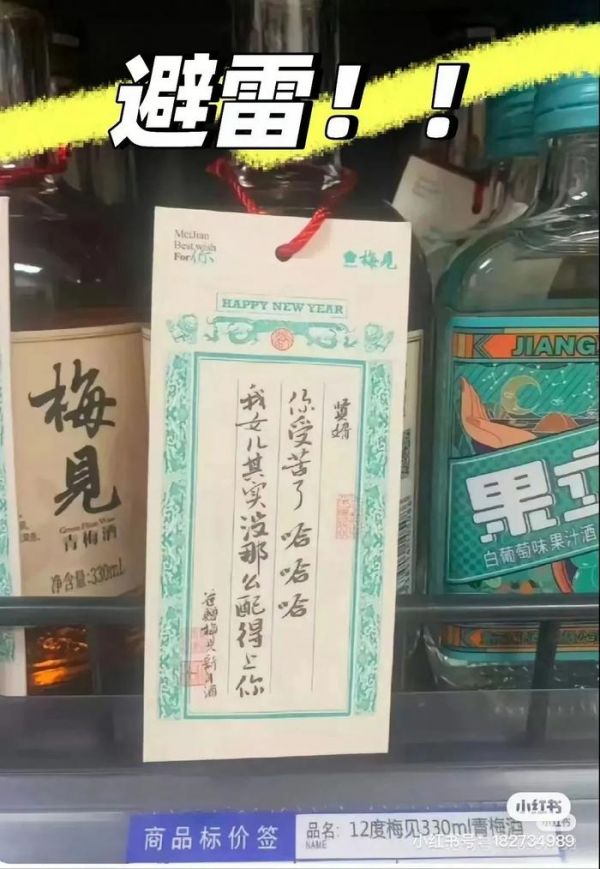 避雷！！
MeiJian
Best wish
For你
梅見
HAPPY NEW YEAR
贤婿
你受苦了 哈哈哈
我女儿其实没那么配得上你
梅見
Green Plum Wine
青梅酒
净含量:330mL
JIANG
果立
白葡萄味果汁酒
商品标价签
品名:
NAME
12度梅见330ml青梅酒
小红书
小红书
小红书号: 182734989